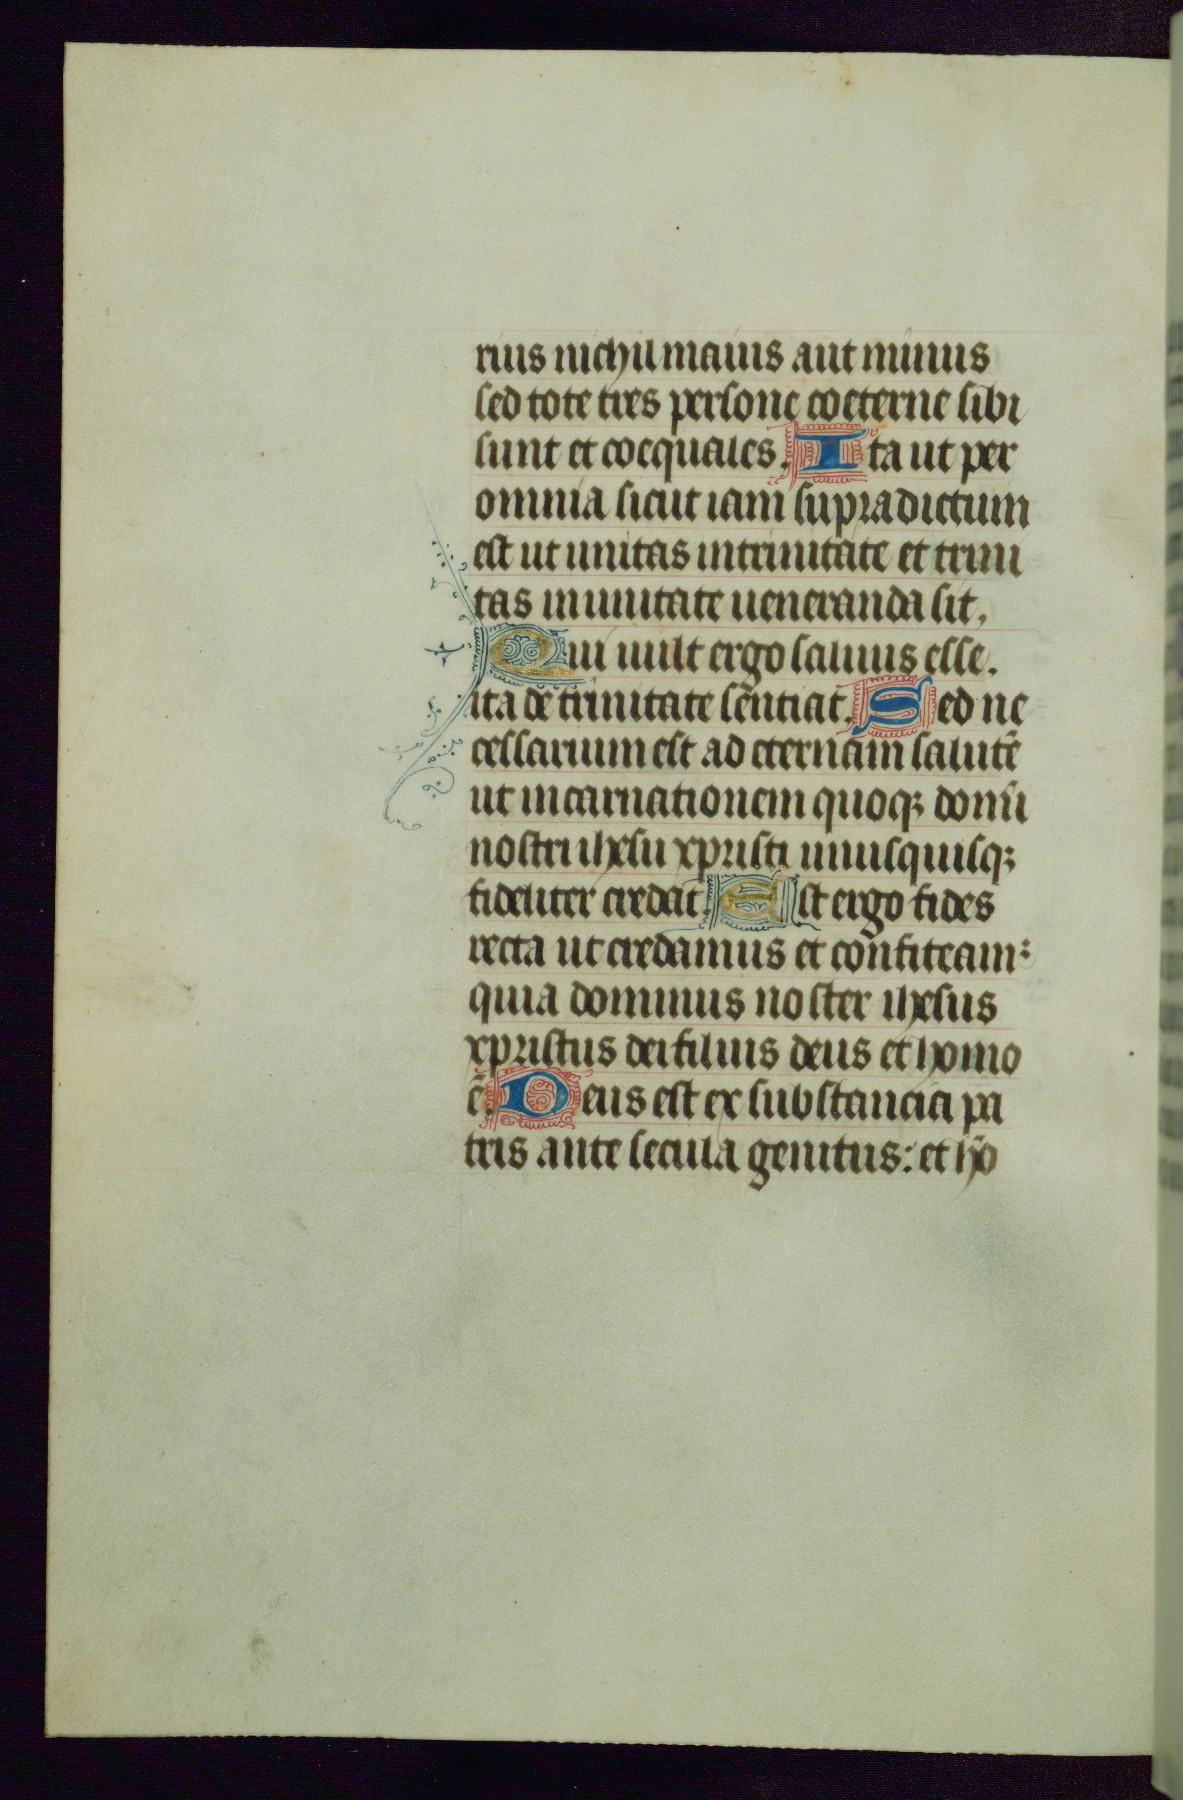 rius nichil maius aut minus
sed tote tres persone coeterne sibi
sunt et coequales. Ita ut per
omnia sicut iam supradictum
est ut unitas in trinitate et trini
tas in unitate ueneranda sit.
Qui uult ergo saluus esse.
ita de trinitate sẽntiat. Sed ne
cessarium est ad eternam salutẽ
ut incarnationem quoqꝫ domĩ
nostri ihesu xpristi unusquisqꝫ
fideliter credat. Est ergo fides
recta ut credamus et confiteam᷒
quia dominus noster ihesus
xpristus dei filius deus et homo
ẽ. Deus est ex substancia pa
tris ante secula genitus: et hõ